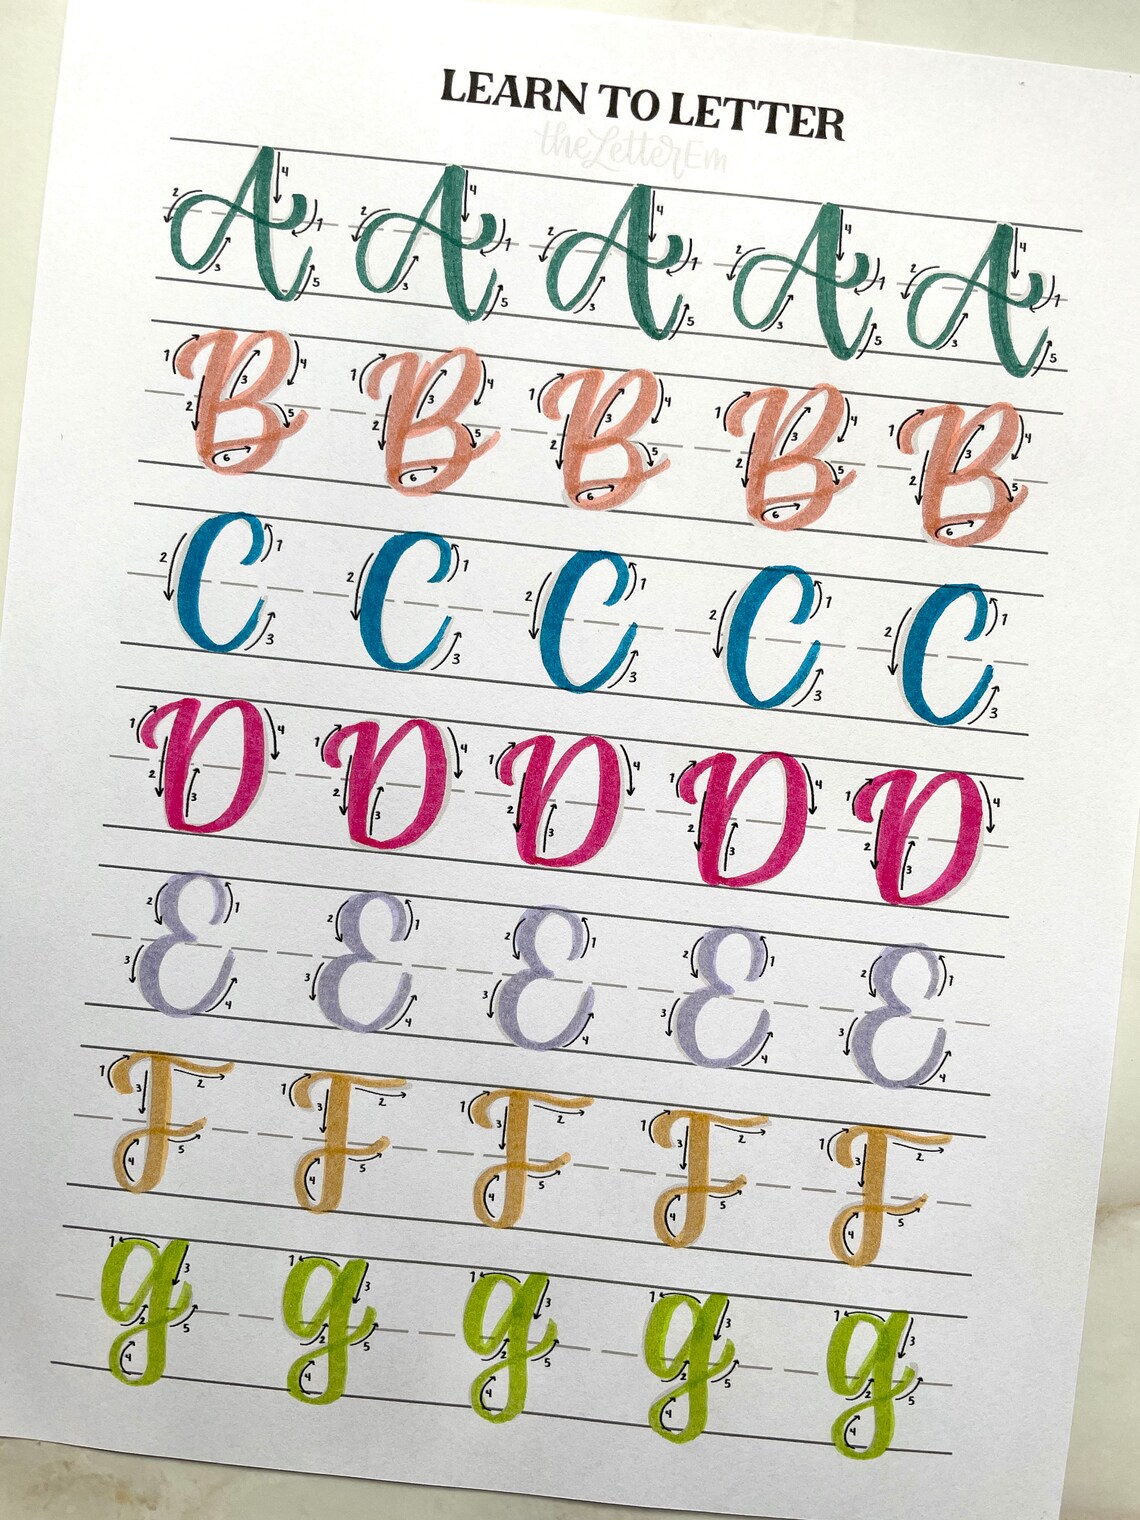 LEARN TO LETTER
theLetterEm
A A A A A
B B B B B
C C C C C
D D D D D
E E E E E
F F F F F
g g g g g